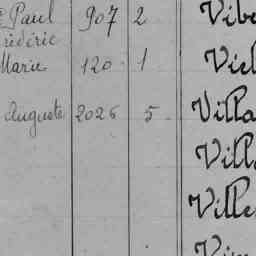 Paul 907 2 Vibe
rédéric
Marie 120 1 Viel
Auguste 2026 5 Villa
Vill
Ville